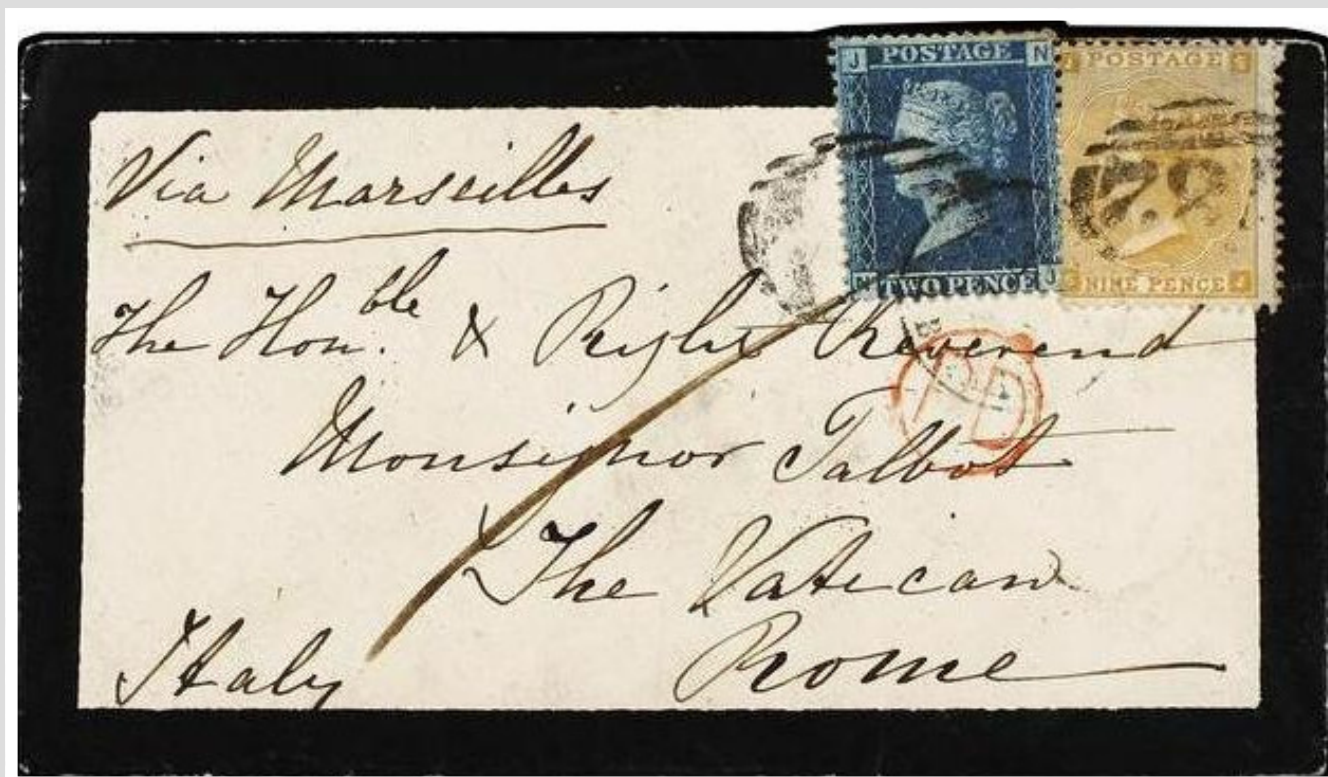 J POSTAGE N
POSTAGE
TWO PENCE J
NINE PENCE
Via Marseilles
The Hon.ble & Right Reverend
PD
Monsignor Talbot
The Vatican
Rome
Italy